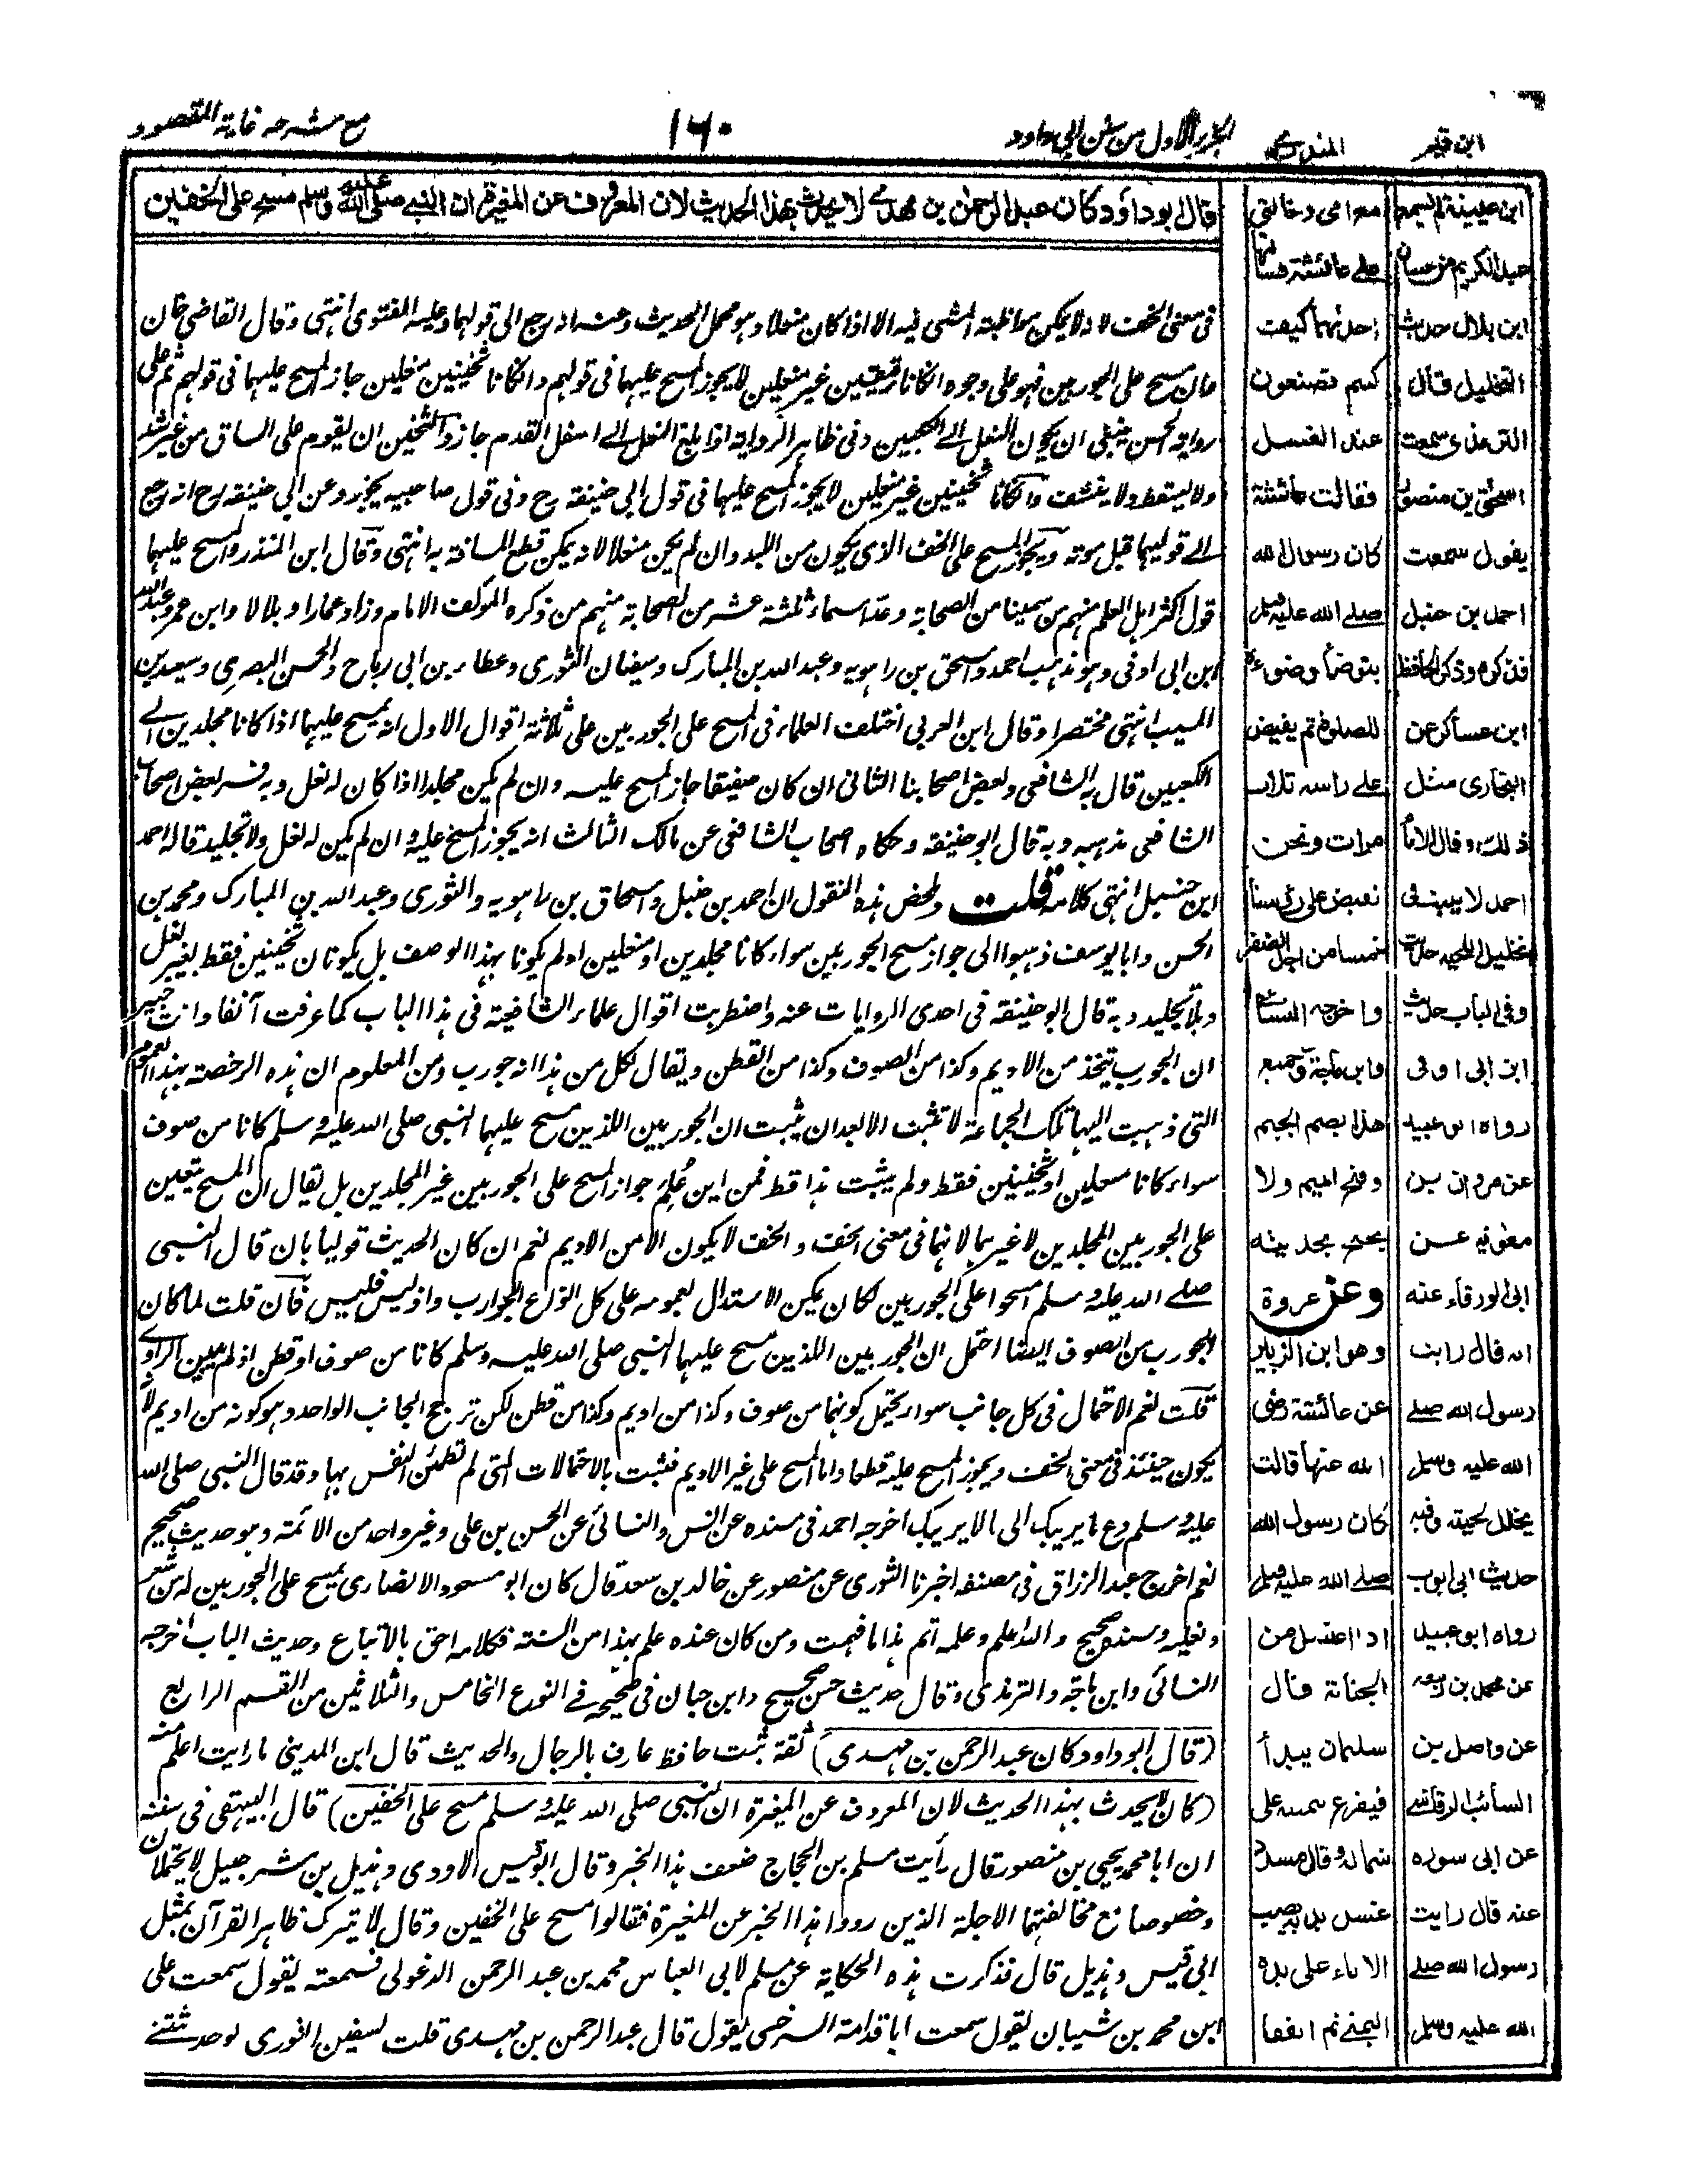 ابن قيم
المنذري
الجزء الاول من سنن ابي داود
١٦٠
مع شرحه غاية المقصود
قال ابو داؤد كان عبد الرحمن بن مهدي لا يحدث بهذا الحديث لان المعروف عن المغيرة ان النبي صلى الله عليه وسلم مسح على الخفين
فى معنى الخف لانه لا يمكن مواظبة المشى فيه الا اذا كان منعلا وهو محمل الحديث وعنه انه رجع الى قولهما وعليه الفتوى انتهى وقال القاضي خان
فان مسح على الجوربين فهو على وجوه ان كانا رقيقين غير منعلين لا يجوز المسح عليهما فى قولهم وان كانا ثخينين منعلين جاز المسح عليهما فى قولهم ثم على
رواية الحسن ينبغى ان يكون النعل الى الكعبين وفى ظاهر الرواية اذا بلغ النعل الى اسفل القدم جاز والثخين ان يقوم على الساق من غير شد
ولا يسقط ولا ينشف وان كانا ثخينين غير منعلين لا يجوز المسح عليهما فى قول ابى حنيفة رح وفى قول صاحبيه يجوز وعن ابى حنيفة رح انه رجع
الى قوليهما قبل موته ويجوز المسح على الخف الذى يكون من اللبد وان لم يكن منعلا لانه يمكن قطع المسافة به انتهى وقال ابن المنذر والمسح عليهما
قول اكثر اهل العلم منهم من سمينا من الصحابة وعد اسماء ثلثة عشر من الصحابة منهم من ذكره المؤلف الامام وزاد عمارا وبلالا وابن عمر وعبد الله
ابن ابى اوفى وهو مذهب احمد واسحق بن راهويه وعبد الله بن المبارك وسفيان الثورى وعطاء بن ابى رباح والحسن البصرى وسعيد بن
المسيب انتهى مختصرا وقال ابن العربى اختلف العلماء فى المسح على الجوربين على ثلاثة اقوال الاول انه يمسح عليهما اذا كانا مجلدين الى
الكعبين قال به الشافعى وبعض اصحابنا الثانى ان كان صفيقا جاز المسح عليه وان لم يكن مجلدا اذا كان له نعل وبه فسر بعض اصحاب
الشافعى مذهبه وبه قال ابو حنيفة وحكاه اصحاب الشافعى عن مالك الثالث انه يجوز المسح عليه وان لم يكن له نعل ولا تجليد قاله احمد
ابن حنبل انتهى كلامه قلت ولخص هذه النقول ان احمد بن حنبل واسحاق بن راهويه والثورى وعبد الله بن المبارك ومحمد بن
الحسن وابا يوسف ذهبوا الى جواز مسح الجوربين سواء كانا مجلدين او منعلين او لم يكونا بهذا الوصف بل يكونان ثخينين فقط بغير نعل
وبلا تجليد وبه قال ابو حنيفة فى احدى الروايات عنه واضطربت اقوال علماء الشافعية فى هذا الباب كما عرفت آنفا وانت خبير
ان الجورب يتخذ من الاديم وكذا من الصوف وكذا من القطن ويقال لكل من هذا انه جورب ومن المعلوم ان هذه الرخصة بهذا العموم
التى ذهبت اليها تلك الجماعة لا تثبت الا بعد ان يثبت ان الجوربين اللذين مسح عليهما النبى صلى الله عليه وسلم كانا من صوف
سواء كانا منعلين او ثخينين فقط ولم يثبت هذا قط فمن اين عُلِمَ جواز المسح على الجوربين غير المجلدين بل يقال ان المسح يتعين
على الجوربين المجلدين لا غيرهما لانهما فى معنى الخف والخف لا يكون الا من الاديم نعم ان كان الحديث قوليا بان قال النبى
صلى الله عليه وسلم امسحوا على الجوربين لكان يمكن الاستدلال بعمومه على كل انواع الجوارب واذ ليس فليس فان قلت لما كان
الجورب من الصوف ايضا احتمل ان الجوربين اللذين مسح عليهما النبى صلى الله عليه وسلم كانا من صوف او قطن اذ لم يبين الراوى
قلت نعم الاحتمال فى كل جانب سواء يحتمل كونهما من صوف وكذا من اديم وكذا من قطن لكن ترجح الجانب الواحد وهو كونه من اديم لانه
يكون حينئذ فى معنى الخف ويجوز المسح عليه قطعا واما المسح على غير الاديم فثبت بالاحتمالات التى لم تطمئن النفس بها وقد قال النبى صلى الله
عليه وسلم دع ما يريبك الى ما لا يريبك اخرجه احمد فى مسنده عن انس والنسائى عن الحسن بن على وغير واحد من الائمة وهو حديث صحيح
نعم اخرج عبد الرزاق فى مصنفه اخبرنا الثورى عن منصور عن خالد بن سعد قال كان ابو مسعود الانصارى يمسح على الجوربين له من شعر
ونعليه وسنده صحيح والله اعلم وعلمه اتم هذا ما فهمت ومن كان عنده علم بهذا من السنة فكلامه احق بالاتباع وحديث الباب اخرجه
النسائى وابن ماجة والترمذى وقال حديث حسن صحيح وابن حبان فى صحيحه فى النوع الخامس والثلاثين من القسم الرابع
(قال ابو داود كان عبد الرحمن بن مهدى) ثقة ثبت حافظ عارف بالرجال والحديث قال ابن المدينى ما رايت اعلم منه
(كان لا يحدث بهذا الحديث لان المعروف عن المغيرة ان النبى صلى الله عليه وسلم مسح على الخفين) قال البيهقى فى سننه
ان ابا محمد يحيى بن منصور قال رأيت مسلم بن الحجاج ضعف هذا الخبر وقال ابو قيس الاودى وهذيل بن شرجيل لا يحتملان
وخصوصا مع مخالفتهما الاجلة الذين رووا هذا الخبر عن المغيرة فقالوا مسح على الخفين وقال لا يترك ظاهر القرآن بمثل
ابى قيس وهذيل قال فذكرت هذه الحكاية عن مسلم لابى العباس محمد بن عبد الرحمن الدغولى فسمعته يقول سمعت على
ابن محمد بن شيبان يقول سمعت ابا قدامة السرخسى يقول قال عبد الرحمن بن مهدى قلت لسفين الثورى لو حدثتنى
مع امى وخالتى
على عائشة فسالتها
احدٰهما كيف
كنتم تصنعون
عند الغسل
فقالت عائشة
كان رسول الله
صلى الله عليه وسلم
يتوضأ وضوءه
للصلوة ثم يفيض
على راسه ثلاث
مرات ونحن
نفيض على رؤسنا
خمسا من اجل الضفر
واخرجه النسائى
وابن ماجة وجميع
هذا بضم الجيم
وفتح الميم ولا
يحتج بحديثه
وعن عروة
وهو ابن الزبير
عن عائشة رضى
الله عنها قالت
كان رسول الله
صلى الله عليه وسلم
اذا اغتسل من
الجنابة قال
سليمان يبدأ
فيفرغ بيمينه على
شماله وقال مسدد
غسل يديه يصب
الاناء على يده
اليمنى ثم اتفقا
ابن عيينة لم يسمع
عبد الكريم من حسان
ابن بلال حديث
التخليل قال
الترمذى سمعت
اسحق بن منصور
يقول سمعت
احمد بن حنبل
فذكره وذكر الحافظ
ابن عساكر عن
البخارى مثل
ذلك وقال الامام
احمد لا يثبت فى
تخليل اللحية حديث
وفى الباب حديث
ابن ابى اوفى
رواه ابو عبيد
عن مروان بن
معوية عن
ابى الورقاء عنه
انه قال رايت
رسول الله صلى
الله عليه وسلم
يخلل لحيته وفيه
حديث ابى ايوب
رواه ابو عبيد
عن محمد بن ربيعه
عن واصل بن
السائب الرقاشى
عن ابى سوره
عنه قال رايت
رسول الله صلى
الله عليه وسلم